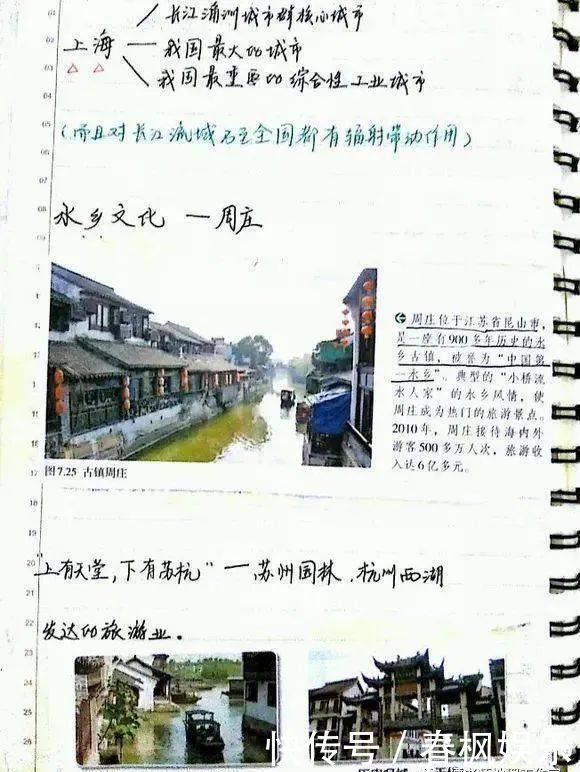 长江三角洲城市群核心城市
上海 — 我国最大的城市
我国最重要的综合性工业城市
(而且对长江流域乃至全国都有辐射带动作用)
水乡文化 — 周庄
周庄位于江苏省昆山市,
是一座有900多年历史的水
乡古镇,被誉为“中国第
一水乡”。典型的“小桥流
水人家”的水乡风情,使
周庄成为热门的旅游景点。
2010年,周庄接待海内外
游客500多万人次,旅游收
入达6亿多元。
图7.25 古镇周庄
“上有天堂,下有苏杭” — 苏州园林、杭州西湖
发达的旅游业。
快传号 / 春枫娱乐